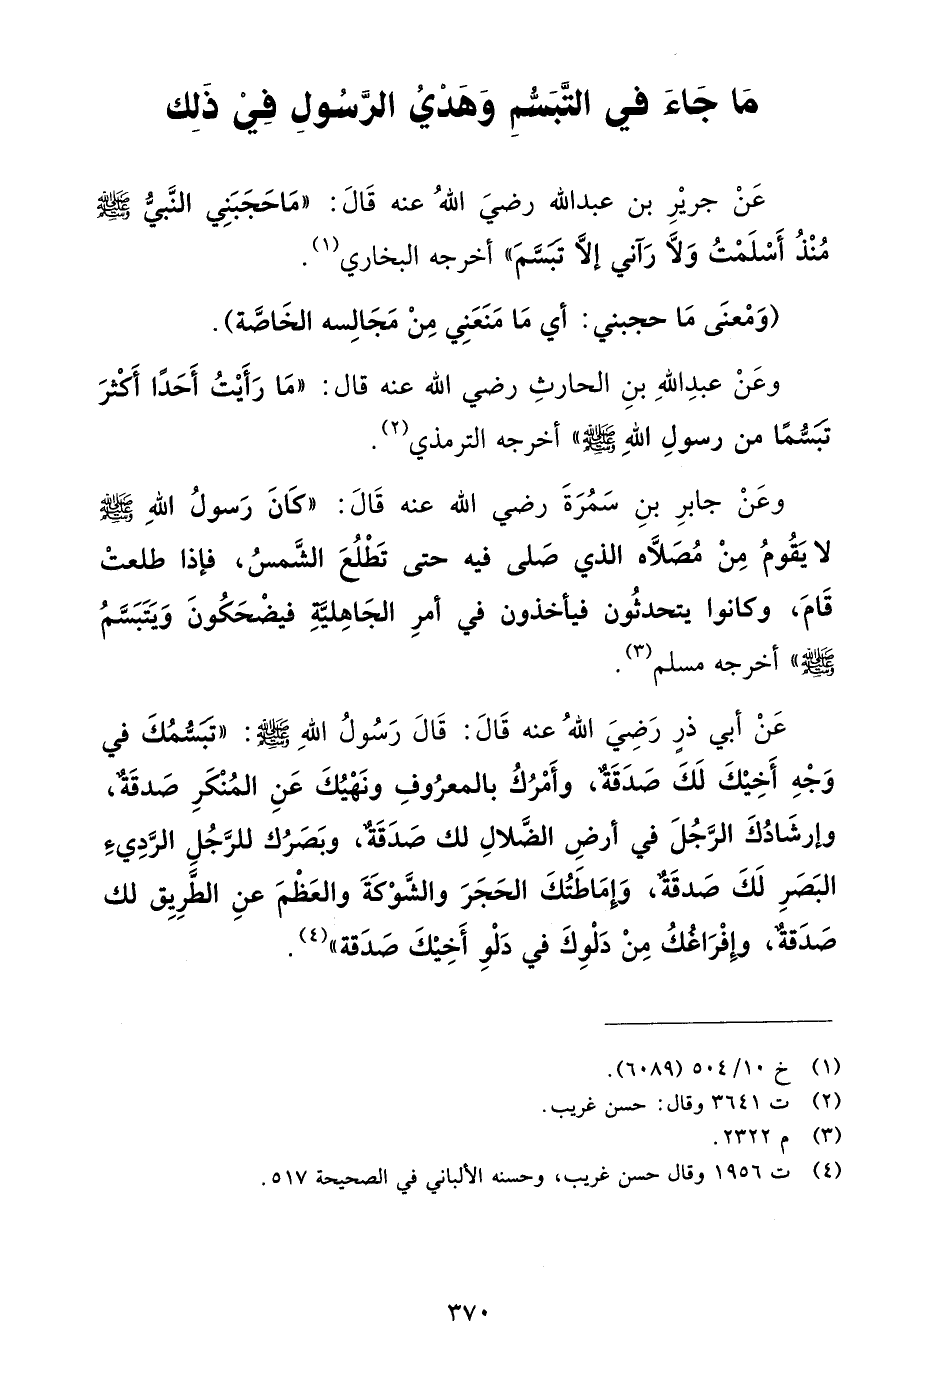 مَا جَاءَ في التَّبَسُّمِ وَهَدْيُ الرَّسُولِ فِيْ ذَلِك
عَنْ جريْرِ بن عبدالله رضيَ اللهُ عنه قَالَ: «مَاحَجَبَنِي النَّبيُّ ﷺ
مُنْذُ أَسْلَمْتُ وَلاَ رَآني إلاَّ تَبَسَّمَ» أخرجه البخاري(١).
(وَمْعنَى مَا حجبني: أي مَا مَنَعَنِي مِنْ مَجَالِسه الخَاصَّة).
وعَنْ عبدِاللهِ بنِ الحارثِ رضي الله عنه قال: «مَا رَأَيْتُ أَحَدًا أَكْثرَ
تَبَسُّمًا من رسولِ اللهِ ﷺ» أخرجه الترمذي(٢).
وعَنْ جابرِ بنِ سَمُرَةَ رضي الله عنه قَالَ: «كَانَ رَسولُ اللهِ ﷺ
لا يَقُومُ مِنْ مُصَلاَّه الذي صَلى فيه حتى تَطْلُعَ الشَّمسُ، فإذا طلعتْ
قَامَ، وكانوا يتحدثُون فيأخذون في أمرِ الجَاهِليَّةِ فيضْحَكُونَ وَيَتَبَسَّمُ
ﷺ» أخرجه مسلم(٣).
عَنْ أبي ذرٍ رَضِيَ اللهُ عنه قَالَ: قَالَ رَسُولُ اللهِ ﷺ: «تَبَسُّمُكَ في
وَجْهِ أَخِيْكَ لَكَ صَدَقَةٌ، وأَمْرُكُ بالمعرُوفِ ونَهْيُكَ عَنِ المُنْكَرِ صَدقَةٌ،
وإرشَادُكَ الرَّجُلَ في أرضِ الضَّلالِ لك صَدَقَةٌ، وبَصَرُك للرَّجُلِ الرَّدِيءِ
البَصَرِ لَكَ صَدقَةٌ، وَإمَاطَتُكَ الحَجَرَ والشَّوْكَةَ والعَظْمَ عنِ الطَّرِيِق لك
صَدَقةٌ، وإفْرَاغُكُ مِنْ دَلْوِكَ في دَلْوِ أَخِيْكَ صَدَقة»(٤).
(١) خ ١٠/ ٥٠٤ (٦٠٨٩).
(٢) ت ٣٦٤١ وقال: حسن غريب.
(٣) م ٢٣٢٢.
(٤) ت ١٩٥٦ وقال حسن غريب، وحسنه الألباني في الصحيحة ٥١٧.
٣٧٠